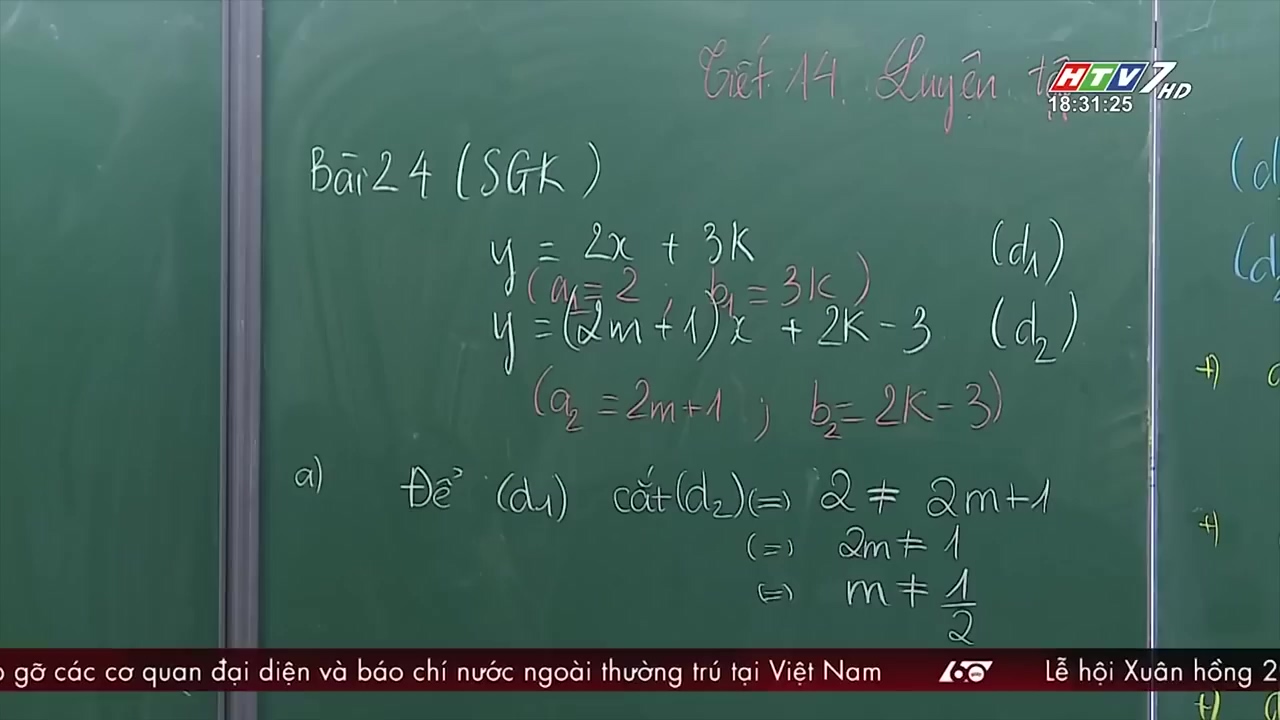 Tiết 14. Luyện
HTV7 HD
18:31:25
Bài 24 (SGK)
y = 2x + 3K (d₁)
(a₁ = 2 ; b₁ = 3K)
y = (2m+1)x + 2K - 3 (d₂)
(a₂ = 2m+1 ; b₂ = 2K - 3)
a) Để (d₁) cắt (d₂) (=) 2 ≠ 2m+1
(=) 2m ≠ 1
(=) m ≠ 1/2
(d
(d
+)
+)
+)
gỡ các cơ quan đại diện và báo chí nước ngoài thường trú tại Việt Nam 60 Lễ hội Xuân hồng 2